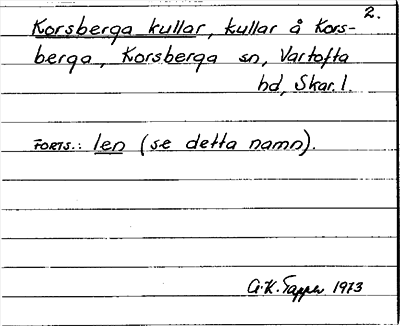 2.
Korsberga kullar, kullar å Kors-
berga, Korsberga sn, Vartofta
hd, Skar. l.
FORTS.: len (se detta namn).
G.K. Tapper 1973